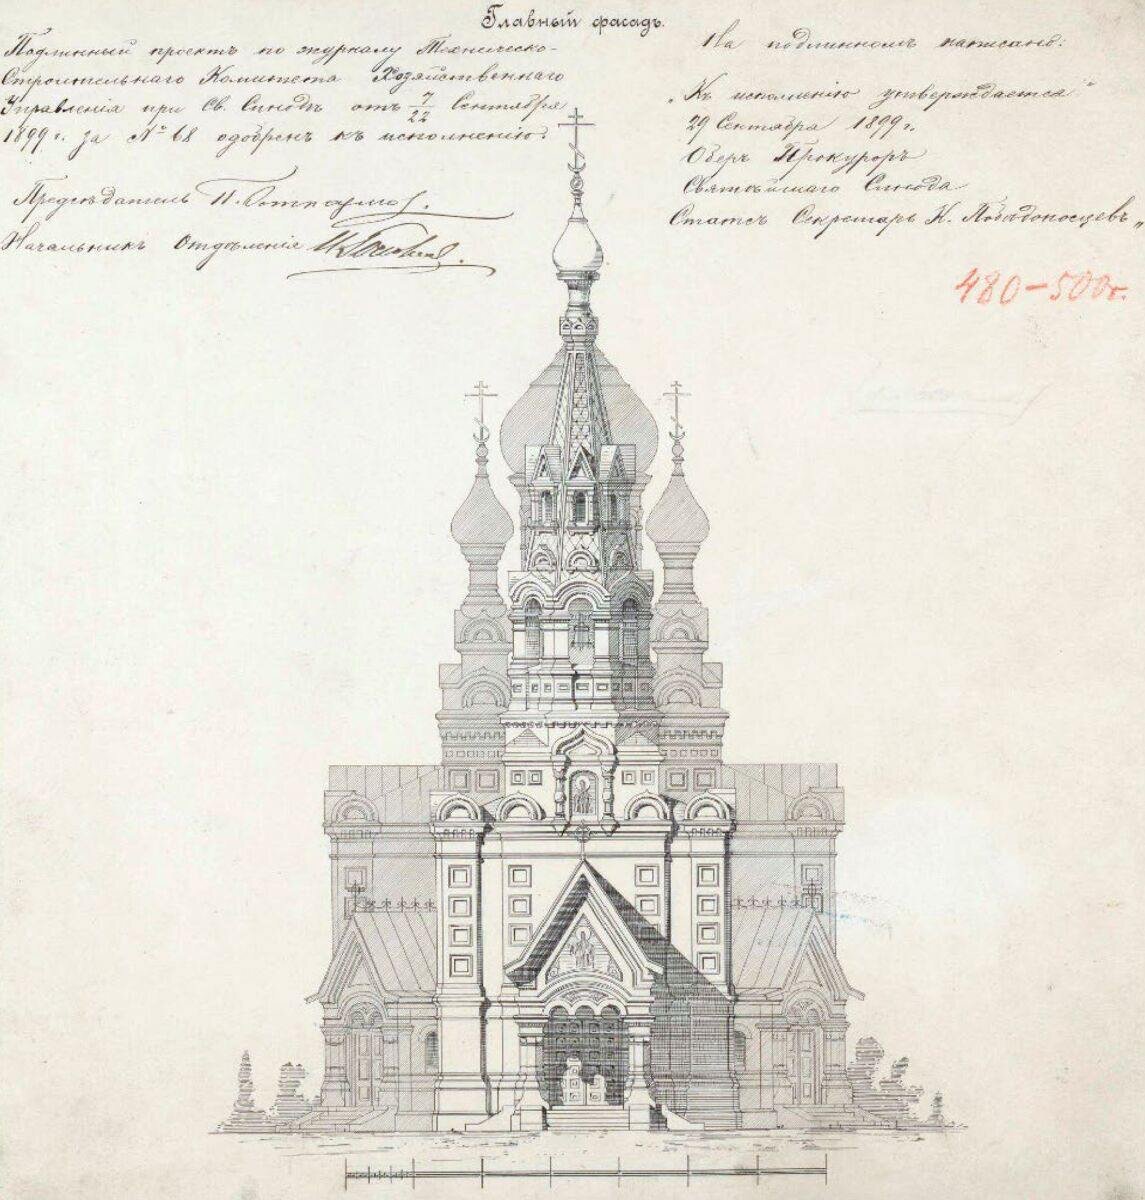 Главный фасадъ.
Подлинный проектъ по журналу Техническо-
Строительнаго Комитета Хозяйственнаго
Управленія при Св. Синодѣ отъ 7/22 Сентября
1899 г. за № 68 одобренъ къ исполненію.
Предсѣдатель П.
Начальникъ Отдѣленія
На подлинномъ написано:
"Къ исполненію утверждается"
29 Сентября 1899 г.
Оберъ Прокуроръ
Святѣйшаго Синода
Статсъ Секретарь К. Побѣдоносцевъ"
480-500г.